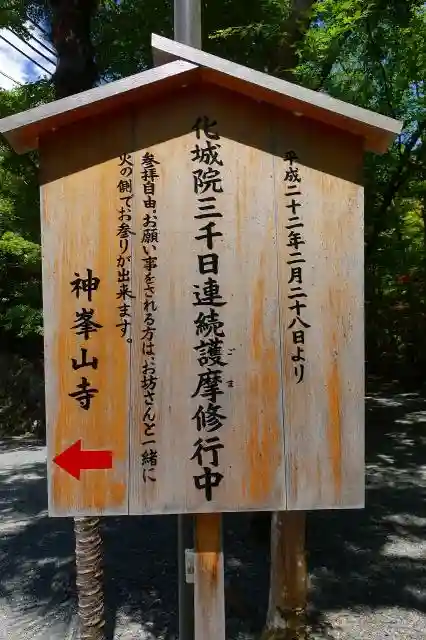 平成二十二年二月二十八日より
化城院三千日連続護摩修行中
ごま
参拝自由、お願い事をされる方は、お坊さんと一緒に
火の側でお参りが出来ます。
神峯山寺